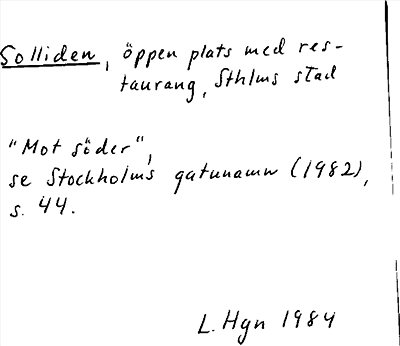 Solliden, öppen plats med res-
taurang, Sthlms stad
"Mot söder",
se Stockholms gatunamn (1982),
s. 44.
L. Hgn 1984